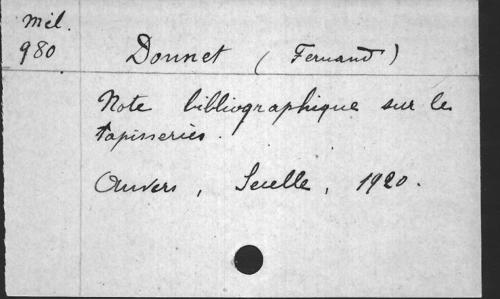 Mél.
980
Donnet (Fernand)
Note bibliographique sur les
tapisseries.
Anvers, Secelle, 1920.